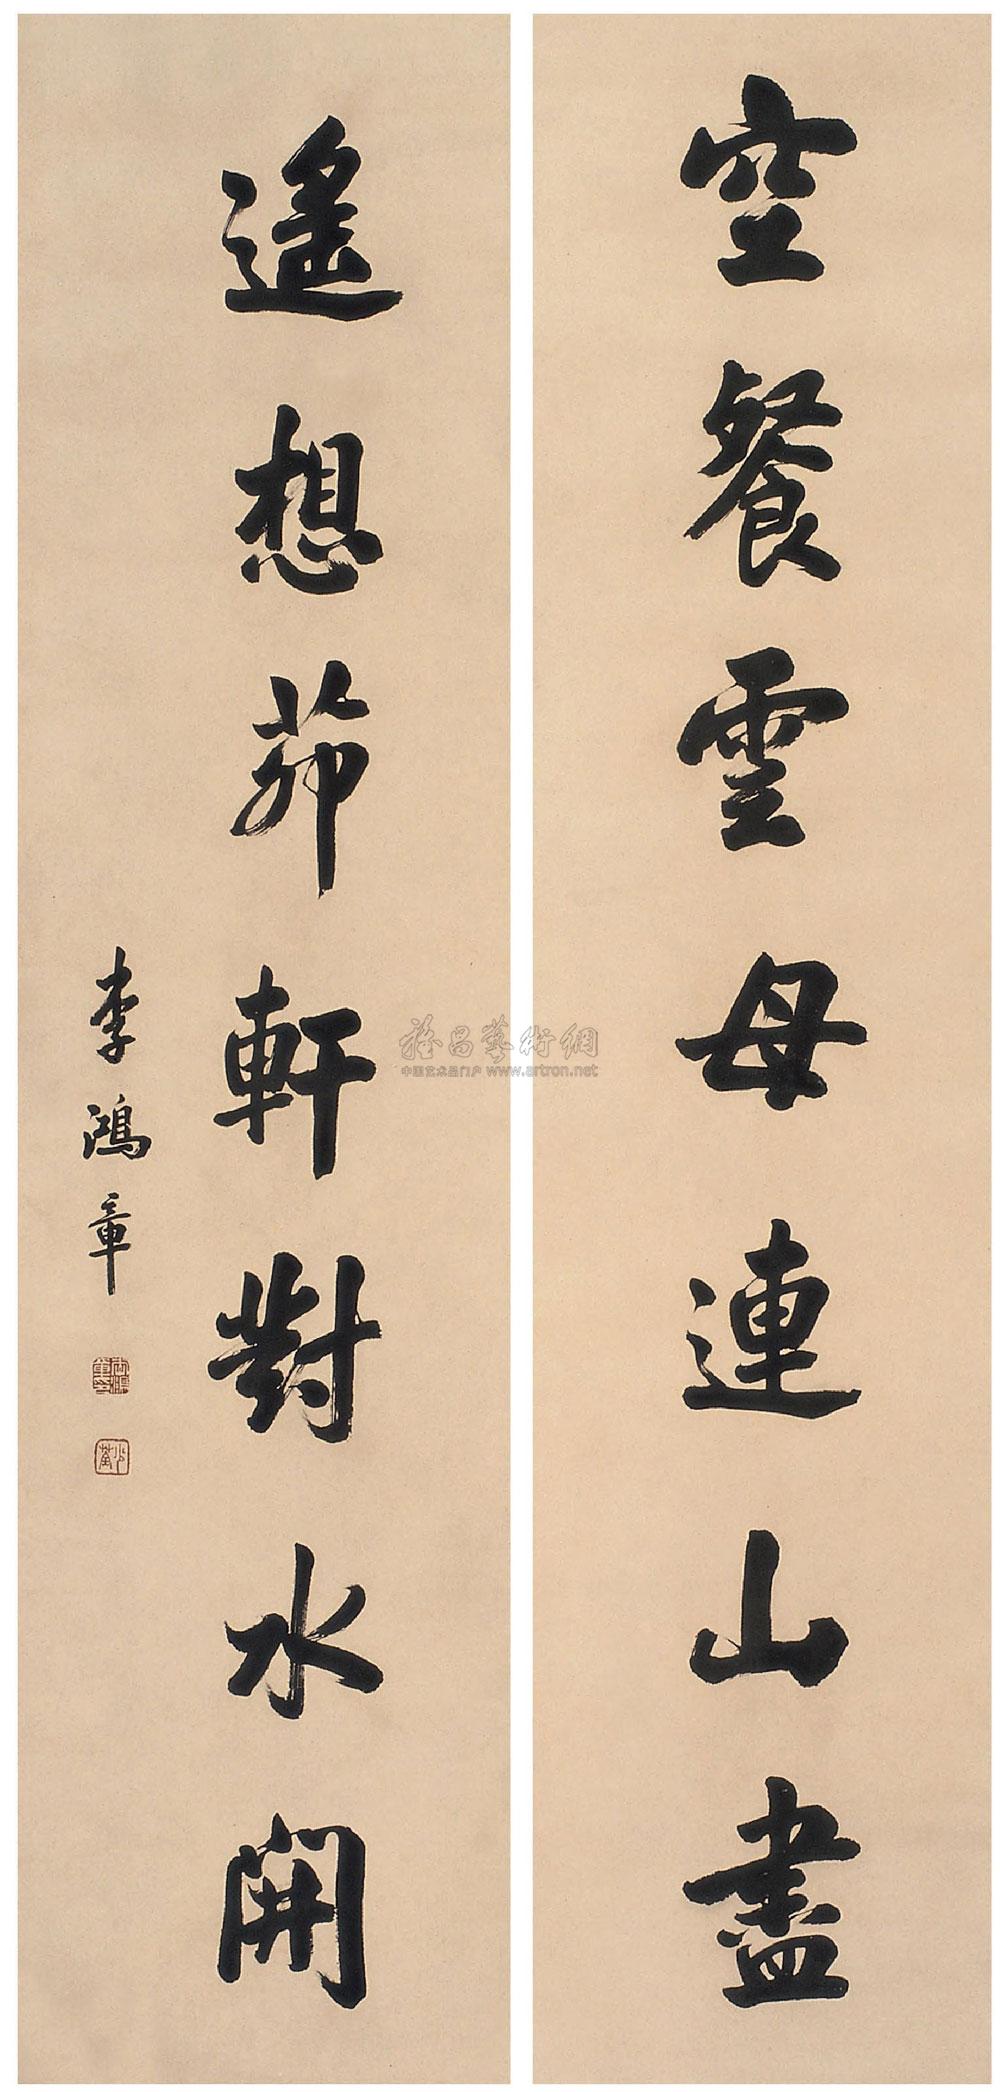 空餐雲母連山盡
遙想茆軒對水開
李鴻章
雅昌藝術網
中国艺术品门户 www.artron.net